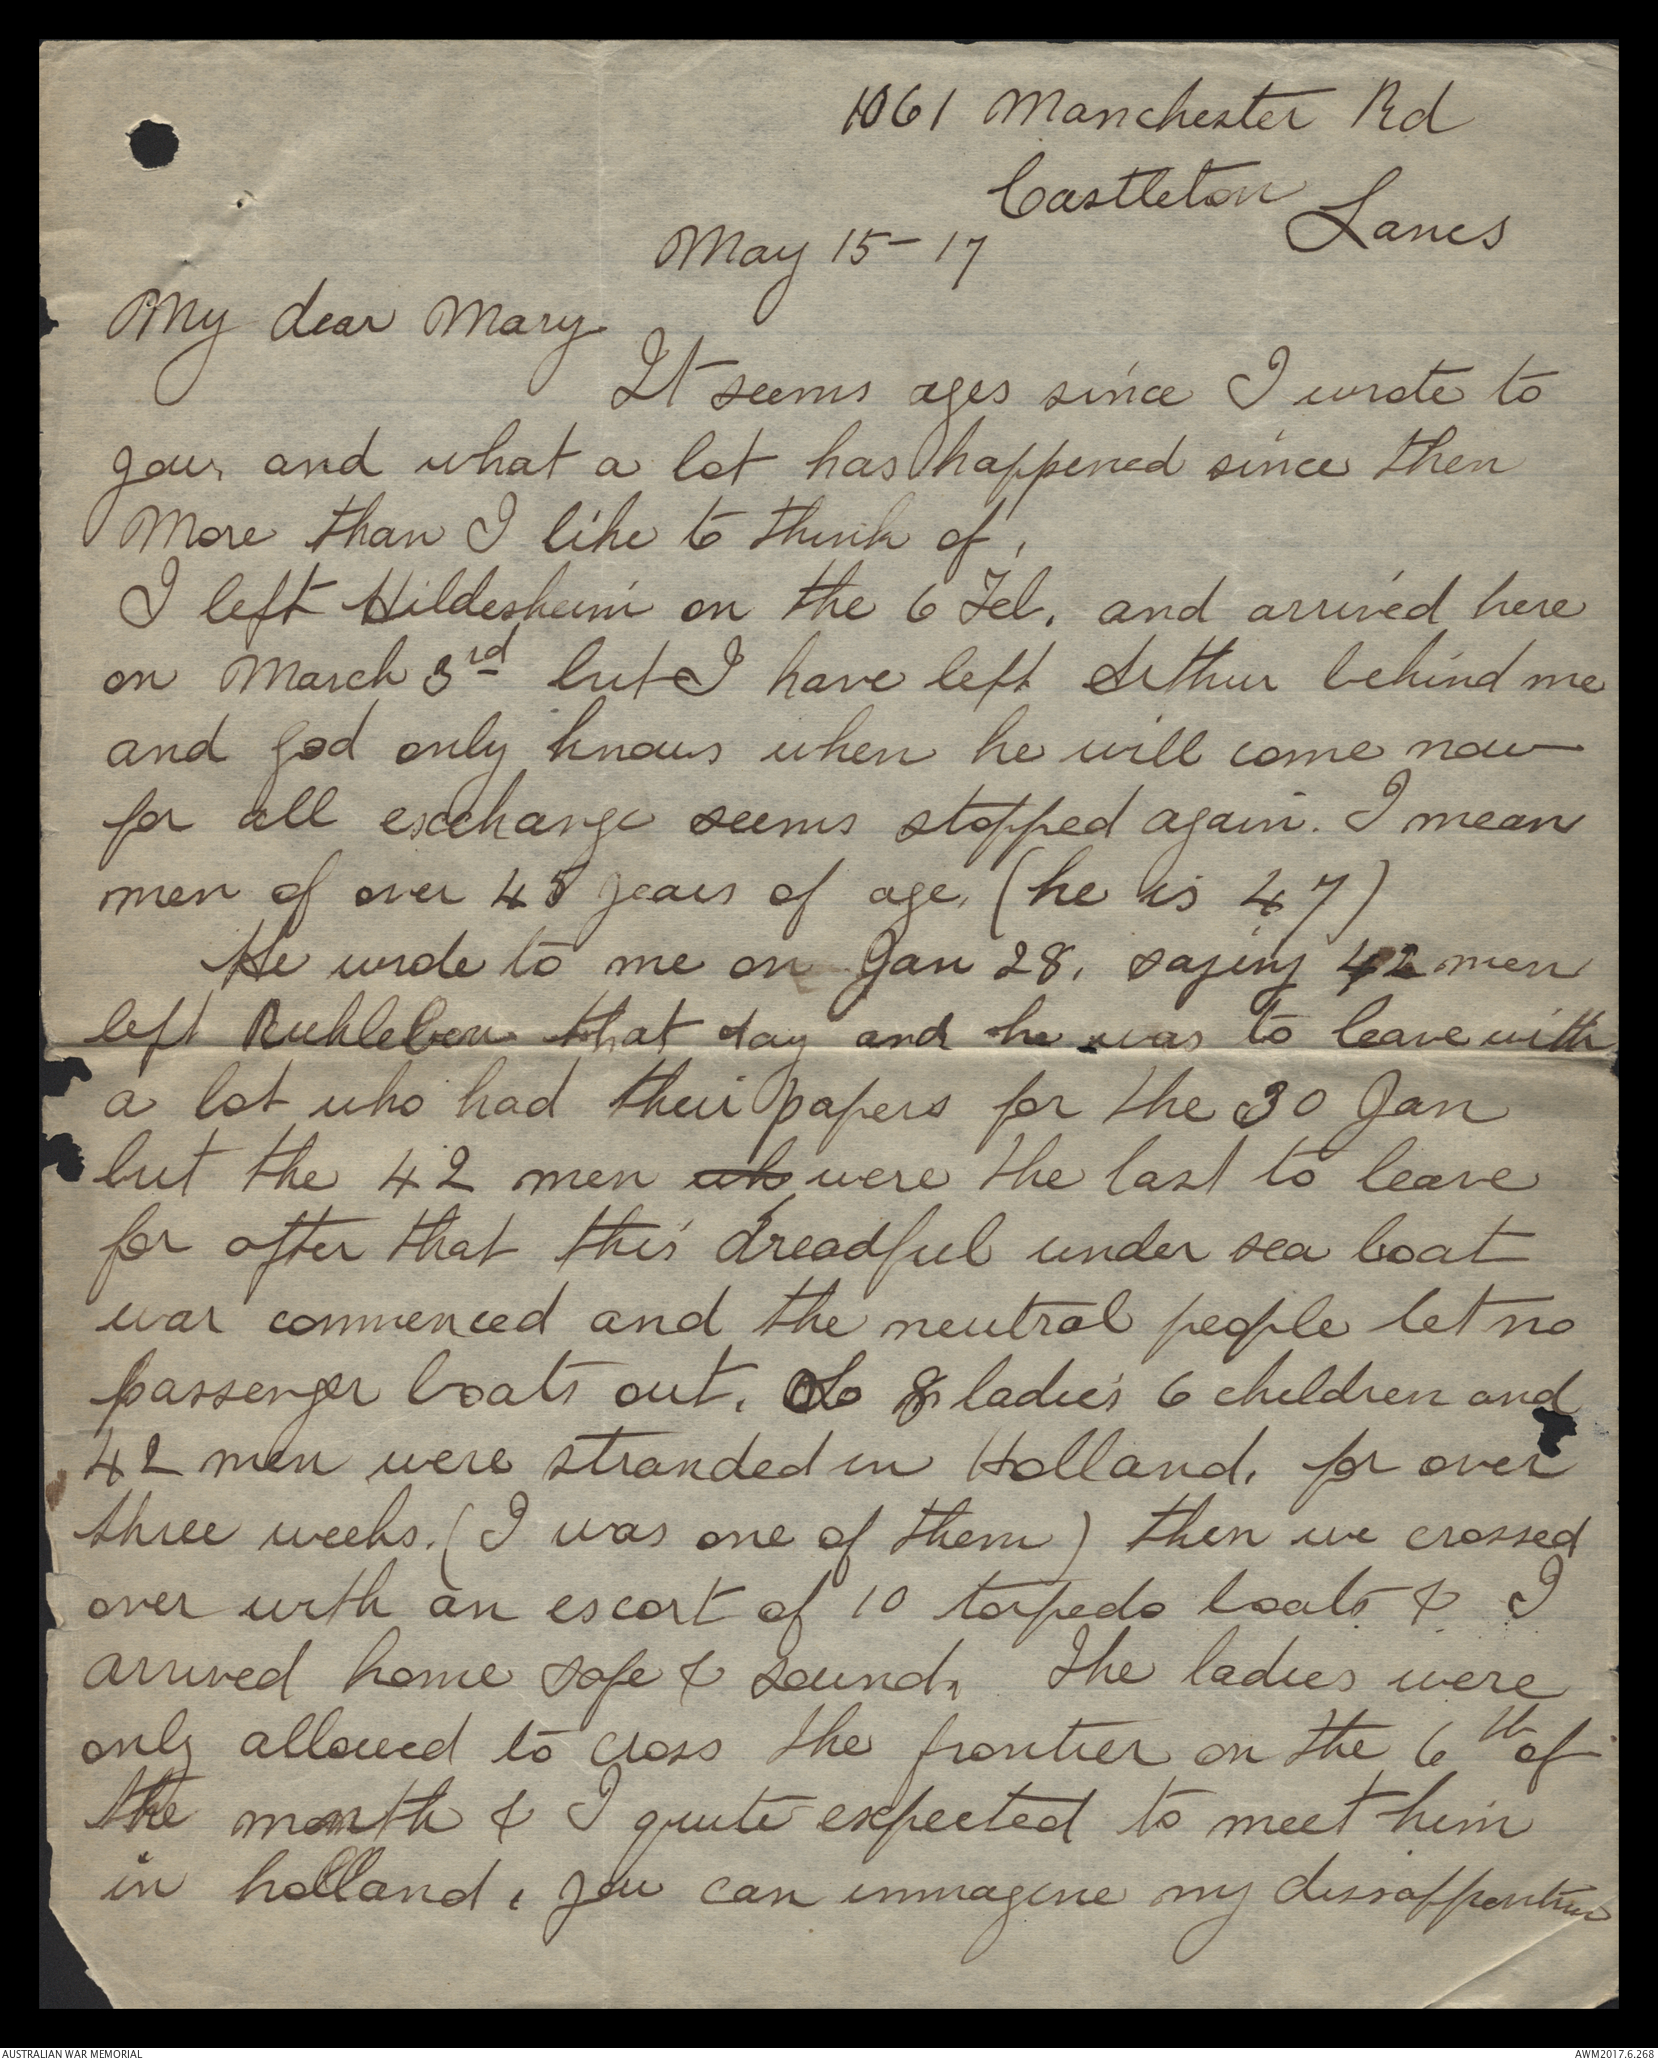 1061 Manchester Rd
Castleton Lancs
May 15-17
My dear Mary
It seems ages since I wrote to
you, and what a lot has happened since then
More than I like to think of.
I left Hildesheim on the 6 Feb. and arrived here
on March 3rd but I have left Arthur behind me
and god only knows when he will come now
for all exchange seems stopped again. I mean
men of over 45 years of age. (he is 47)
He wrote to me on Jan 28. saying 42 men
left Ruhleben that day and he was to leave with
a lot who had their papers for the 30 Jan
but the 42 men wh were the last to leave
for after that this dreadful under sea boat
war commenced and the neutral people let no
passenger boats out. So 8 ladies 6 children and
42 men were stranded in Holland, for over
three weeks. (I was one of them) then we crossed
over with an escort of 10 torpedo boats & I
arrived home safe & sound. The ladies were
only allowed to cross the frontier on the 6th of
the month & I quite expected to meet him
in holland, you can immagine my
AUSTRALIAN WAR MEMORIAL
AWM2017.6.268